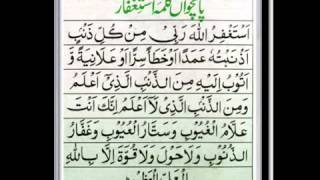 پانچواں کلمہ استغفار
اَسْتَغْفِرُ اللهَ رَبِّيْ مِنْ كُلِّ ذَنْبٍ
اَذْنَبْتُهٗ عَمَدًا اَوْ خَطَأً سِرًّا اَوْ عَلَانِيَةً وَّ
اَتُوْبُ اِلَيْهِ مِنَ الذَّنْبِ الَّذِيْ اَعْلَمُ
وَمِنَ الذَّنْبِ الَّذِيْ لَا اَعْلَمُ اِنَّكَ اَنْتَ
عَلَّامُ الْغُيُوْبِ وَسَتَّارُ الْعُيُوْبِ وَغَفَّارُ
الذُّنُوْبِ وَلَا حَوْلَ وَلَا قُوَّةَ اِلَّا بِاللهِ
الْعَلِيِّ الْعَظِيْمِ